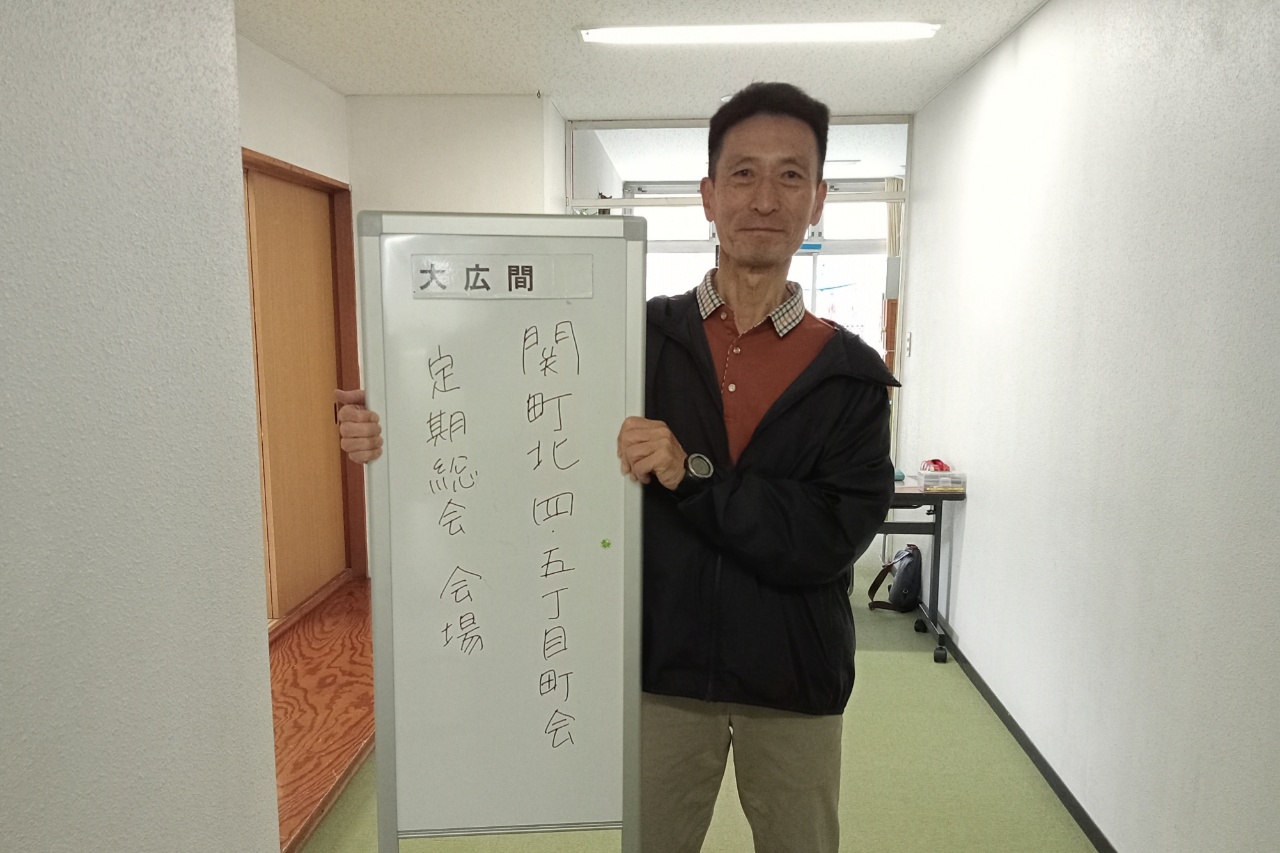 大広間
関町北四・五丁目町会
定期総会 会場